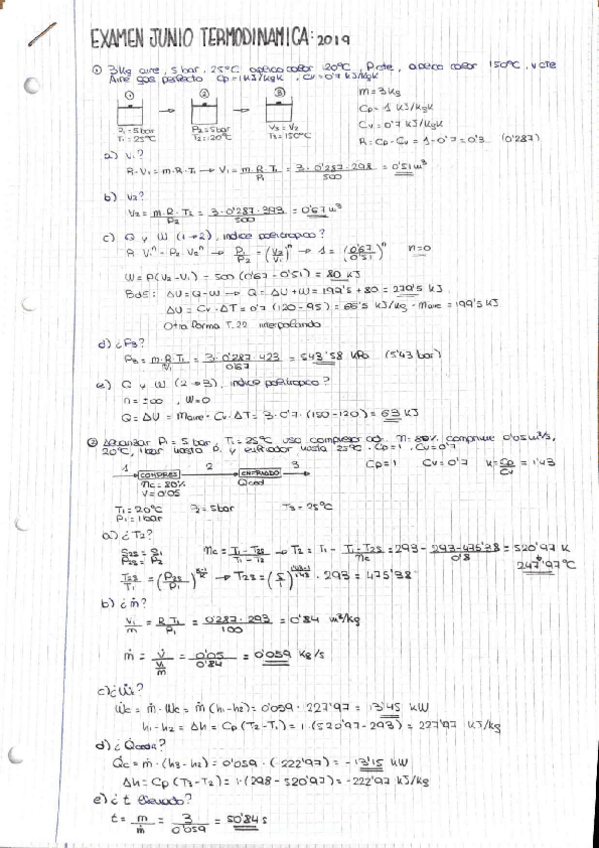 EXAMEN JUNIO TERMODINAMICA: 2019
① 3Kg aire, 5 bar, 25°C aplico calor 120°C, P cte, aplico calor 150°C, v cte
Aire gas perfecto Cp=1KJ/KgK, Cv=0'7 KJ/KgK
① ② ③
P1=5bar P2=5bar V3=V2
T1=25°C T2=120°C T3=150°C
m=3Kg
Cp=1 KJ/KgK
Cv=0'7 KJ/KgK
R=Cp-Cv=1-0'7=0'3 (0'287)
a) V1?
P1·V1=m·R·T1 → V1=m·R·T1/P1 = 3·0'287·298/500 = 0'51m³
b) V2?
V2=m·R·T2/P2 = 3·0'287·393/500 = 0'67m³
c) Q y W (1→2), indice politropico?
P1·V1ⁿ=P2·V2ⁿ → P1/P2=(V2/V1)ⁿ → 1=(0'67/0'51)ⁿ n=0
W=P(V2-V1)=500(0'67-0'51)=80 KJ
BdE: ΔU=Q-W → Q=ΔU+W=199'5+80=279'5 KJ
ΔU=Cv·ΔT=0'7(120-25)=66'5 KJ/Kg·Maire=199'5KJ
Otra forma T.22 interpolando
d) ¿P3?
P3=m·R·T1/V1 = 3·0'287·423/0'67 = 543'58 KPa (5'43 bar)
e) Q y W (2→3), indice politropico?
n=±∞, W=0
Q=ΔU=Maire·Cv·ΔT=3·0'7·(150-120)=63 KJ
② P1=5bar, T1=25°C uso compresor n=80% comprime 0'05m³/s,
20°C, 1bar hasta P1 y enfriador hasta 25°C. Cp=1. Cv=0'7
1 COMPRES 2 ENFRIADO 3
Cp=1 Cv=0'7 K=Cp/Cv=1'43
nc=80% Qced
V=0'05
T1=20°C 2=5bar T3=25°C
P1=1bar
a) ¿T2?
S2s=S1
P2s=P2
nc=T1-T2s/T1-T2 → T2=T1-T1-T2s/nc=293-293-475'38/0'8=520'97 K
247'97°C
T2s/T1=(P2s/P1)^(k-1/k) → T2s=(5/1)^(1'43-1/1'43)·293=475'38
b) ¿ṁ?
V1/m=R·T1/P1=0'287·293/100=0'84 m³/kg
ṁ=V̇/(V1/m)=0'05/0'84=0'059 kg/s
c) ¿Ẇc?
Ẇc=ṁ·Wc=ṁ(h1-h2)=0'059·227'97=13'45 KW
h1-h2=Δh=Cp(T2-T1)=1·(520'97-293)=227'97 KJ/kg
d) ¿Q̇ced?
Q̇c=ṁ·(h3-h2)=0'059·(-222'97)=-13'15 KW
Δh=Cp(T3-T2)=1·(298-520'97)=-222'97 KJ/kg
e) ¿t llenado?
t=m/ṁ=3/0'059=50'84s